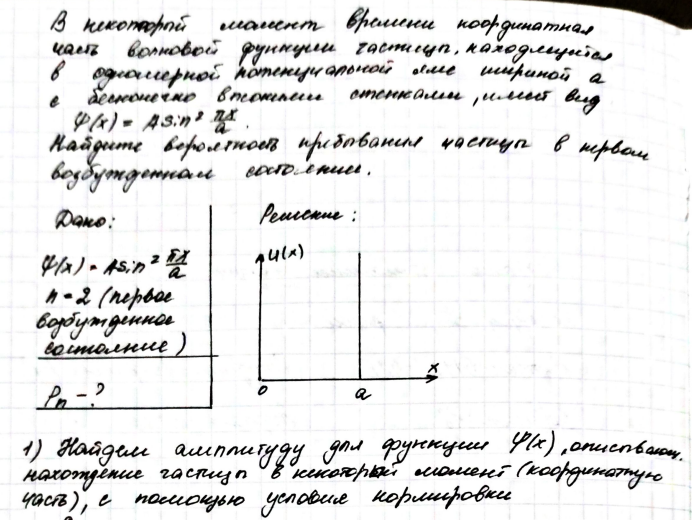 В некоторый момент времени координатная
часть волновой функции частицы, находящейся
в одномерной потенциальной яме шириной a
с бесконечно высокими стенками, имеет вид
Ψ(x) = A sin² πx/a.
Найдите вероятность пребывания частицы в первом
возбужденном состоянии.
Дано:
Решение:
Ψ(x) = A sin² πx/a
n = 2 (первое
возбужденное
состояние)
Pn - ?
U(x)
x
0
a
1) Найдем амплитуду для функции Ψ(x), описывающ.
нахождение частицы в некоторый момент (координатную
часть), с помощью условия нормировки